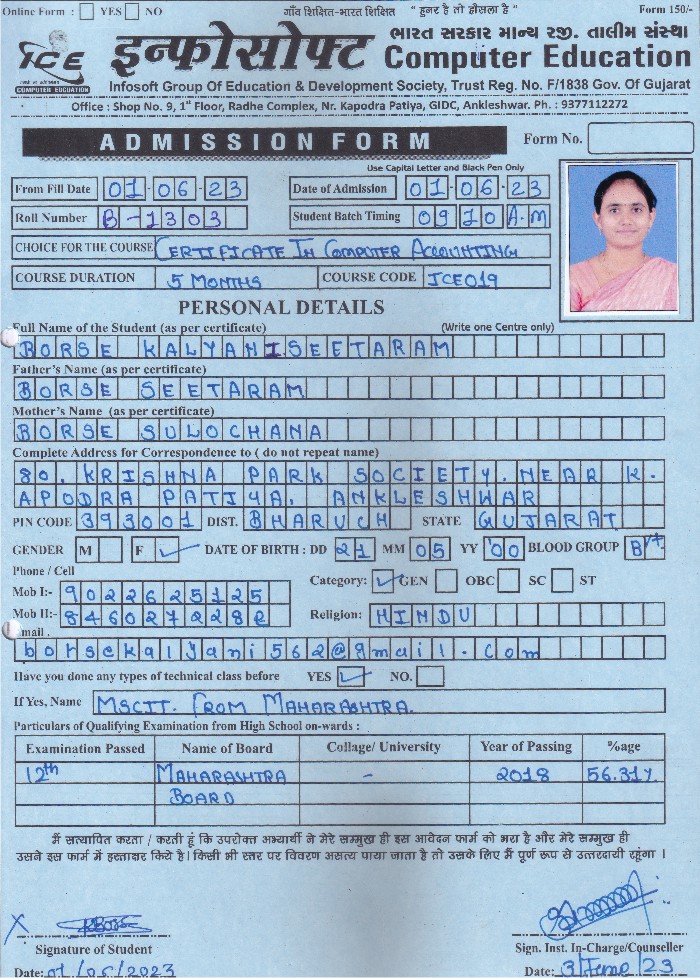 Online Form : YES NO गाँव शिक्षित-भारत शिक्षित " हुनर है तो हौंसला है " Form 150/-
ICE
COMPUTER EDUCATION
इन्फोसोफ्ट
ભારત સરકાર માન્ય રજી. તાલીમ સંસ્થા
Computer Education
Infosoft Group Of Education & Development Society, Trust Reg. No. F/1838 Gov. Of Gujarat
Office : Shop No. 9, 1st Floor, Radhe Complex, Nr. Kapodra Patiya, GIDC, Ankleshwar. Ph. : 9377112272
ADMISSION FORM Form No.
Use Capital Letter and Black Pen Only
From Fill Date 01-06-23 Date of Admission 01-06-23
Roll Number B-1303 Student Batch Timing 0910 A.M
CHOICE FOR THE COURSE CERTIFICATE IN COMPUTER ACCOUNTING
COURSE DURATION 5 MONTHS COURSE CODE ICE019
PERSONAL DETAILS
Full Name of the Student (as per certificate) (Write one Centre only)
BORSE KALYANI SEETARAM
Father's Name (as per certificate)
BORSE SEETARAM
Mother's Name (as per certificate)
BORSE SULOCHANA
Complete Address for Correspondence to ( do not repeat name)
80, KRISHNA PARK SOCIETY. NEAR K-
APODRA PATIYA, ANKLESHWAR
PIN CODE 393001 DIST. BHARUCH STATE GUJARAT
GENDER M F ✓ DATE OF BIRTH : DD 21 MM 05 YY '00 BLOOD GROUP B+
Phone / Cell
Category: ✓ GEN OBC SC ST
Mob I:- 9022625125
Mob II:- 8460272282 Religion: HINDU
mail .
borsekalyani562@gmail.com
Have you done any types of technical class before YES ✓ NO.
If Yes, Name MSCIT. FROM MAHARASHTRA.
Particulars of Qualifying Examination from High School on-wards :
Examination Passed Name of Board Collage/ University Year of Passing %age
12th MAHARASHTRA - 2018 56.31%
BOARD
मैं सत्यापित करता / करती हूं कि उपरोक्त अभ्यार्थी ने मेरे सम्मुख ही इस आवेदन फार्म को भरा है और मेरे सम्मुख ही
उसने इस फार्म में हस्ताक्षर किये है। किसी भी स्तर पर विवरण असत्य पाया जाता है तो उसके लिए मैं पूर्ण रूप से उत्तरदायी रहूंगा ।
X
Signature of Student Sign. Inst. In-Charge/Counseller
Date: 01/06/2023 Date: 3/June/23